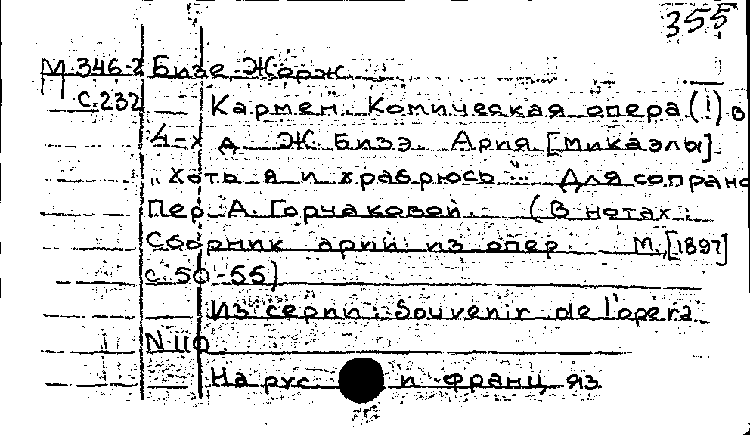 355
М.346-2 Бизе Жорж
С.232 Кармен. Комическая опера (!) в
4-х д. Ж. Бизэ. Ария [Микаэлы]
"Хоть я и храбрюсь". Для сопрано
Пер. А. Горчаковой. (В нотах:
Сборник арий из опер. М., [1897]
с. 50-55)
Из серии: Souvenir de l'opera
N 110
На рус. и франц. яз